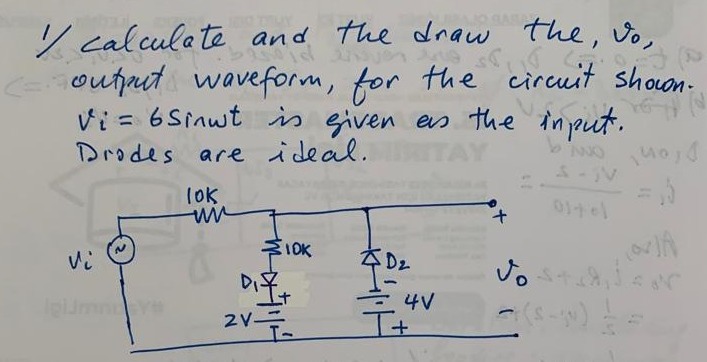 1/ calculate and the draw the, vo,
output waveform, for the circuit shown.
vi = 6 Sinwt is given as the input.
Diodes are ideal.
10K
10K
Vi
D1
+
2V
-
D2
-
4V
+
+
Vo
-